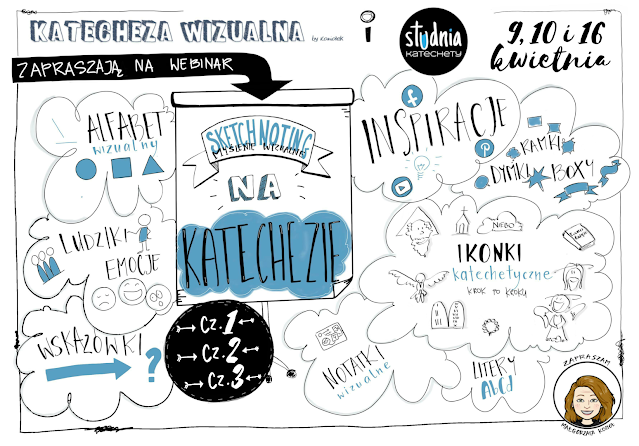 KATECHEZA WIZUALNA
i
studnia
KATECHETY
9, 10 i 16
kwietnia
ZAPRASZAJĄ NA WEBINAR
ALFABET
wizualny
SKETCHNOTING
MYŚLENIE WIZUALNE
NA
KATECHEZIE
INSPIRACJE
RAMKI
DYMKI
BOXY
LUDZIKI
EMOCJE
NIEBO
IKONKI
katechetyczne
KROK PO KROKU
WSKAZÓWKI
?
CZ. 1
CZ. 2
CZ. 3
NOTATKI
wizualne
LITERY
AbCd
ZAPRASZAM
MAŁGORZATA